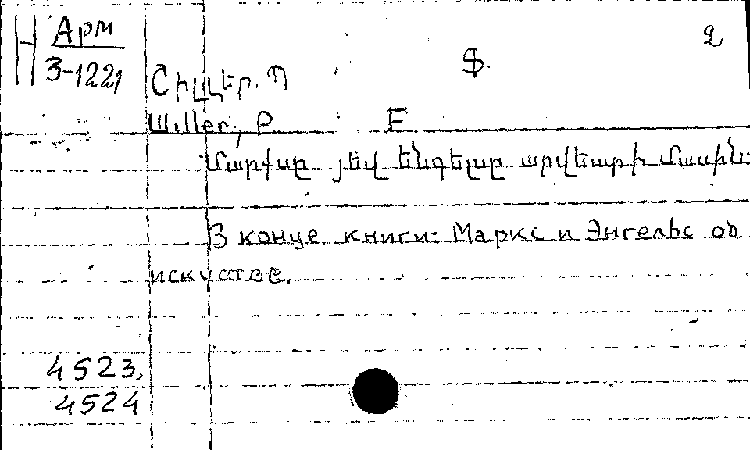 Арм
3-1221
2
Շիլլեր. Պ
Шиллер, Р F
Մարքսը յեվ Ենգելսը արվեստի մասին:
В конце книги: Маркс и Энгельс об
искустве.
4523,
4524